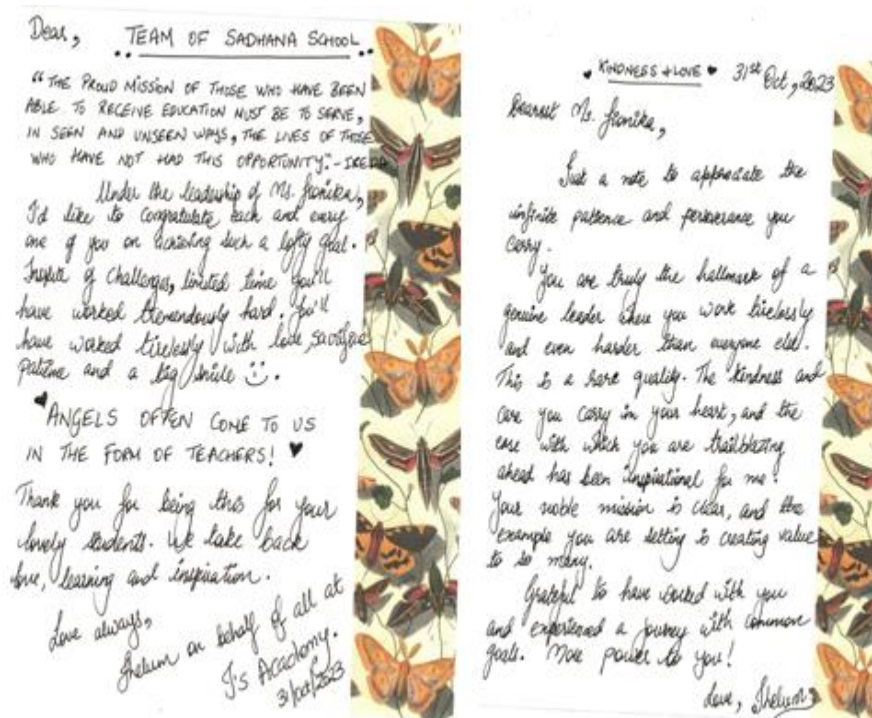 Dear,
TEAM OF SADHANA SCHOOL
"THE PROUD MISSION OF THOSE WHO HAVE BEEN
ABLE TO RECEIVE EDUCATION MUST BE TO SERVE,
IN SEEN AND UNSEEN WAYS, THE LIVES OF THOSE
WHO HAVE NOT HAD THIS OPPORTUNITY." - IKEDA
Under the leadership of Ms.
I'd like to congratulate each and every
one of you on achieving such a lofty goal.
Inspite of challenges, limited time you'll
have worked tremendously hard. You'll
have worked tirelessly with love, sacrifice
patience and a big smile
ANGELS OFTEN COME TO US
IN THE FORM OF TEACHERS!
Thank you for being this for your
lovely students. We take back
love, learning and inspiration.
Love always,
Jhelum on behalf of all at
J's Academy.
31/oct/2023
KINDNESS & LOVE
31st Oct, 2023
Dearest Ms.
Just a note to appreciate the
infinite patience and perseverance you
carry.
You are truly the hallmark of a
genuine leader where you work tirelessly
and even harder than everyone else.
This is a rare quality. The kindness and
care you carry in your heart, and the
ease with which you are trailblazing
ahead has been inspirational for me!
Your noble mission is clear, and the
example you are setting is creating value
to so many.
Grateful to have worked with you
and experienced a journey with common
goals. More power to you!
Love, Jhelum